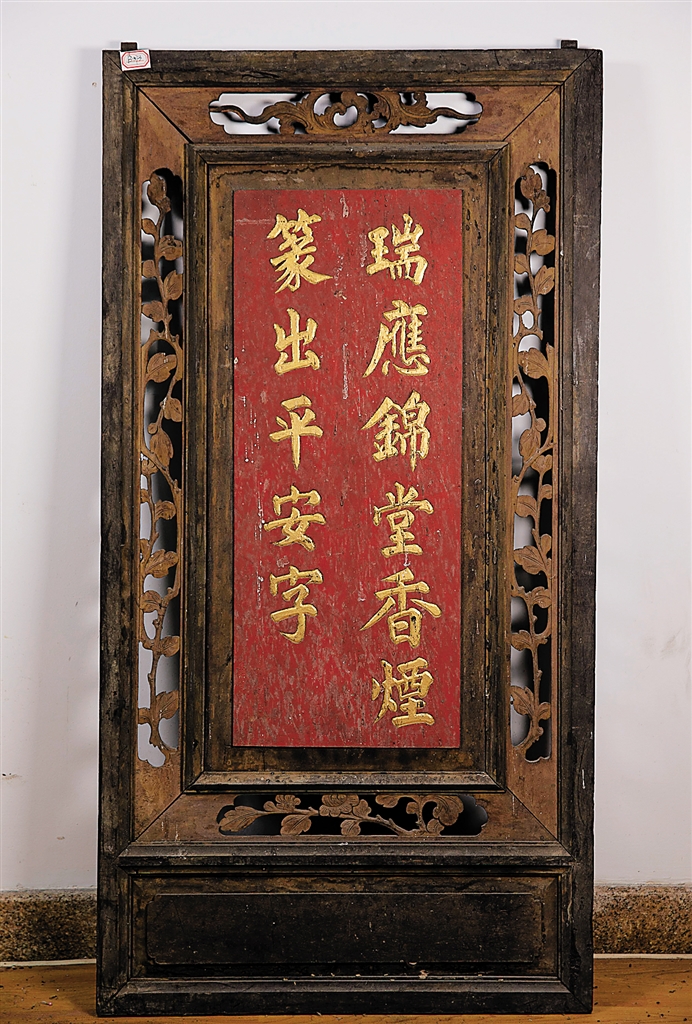 瑞應錦堂香煙
篆出平安字